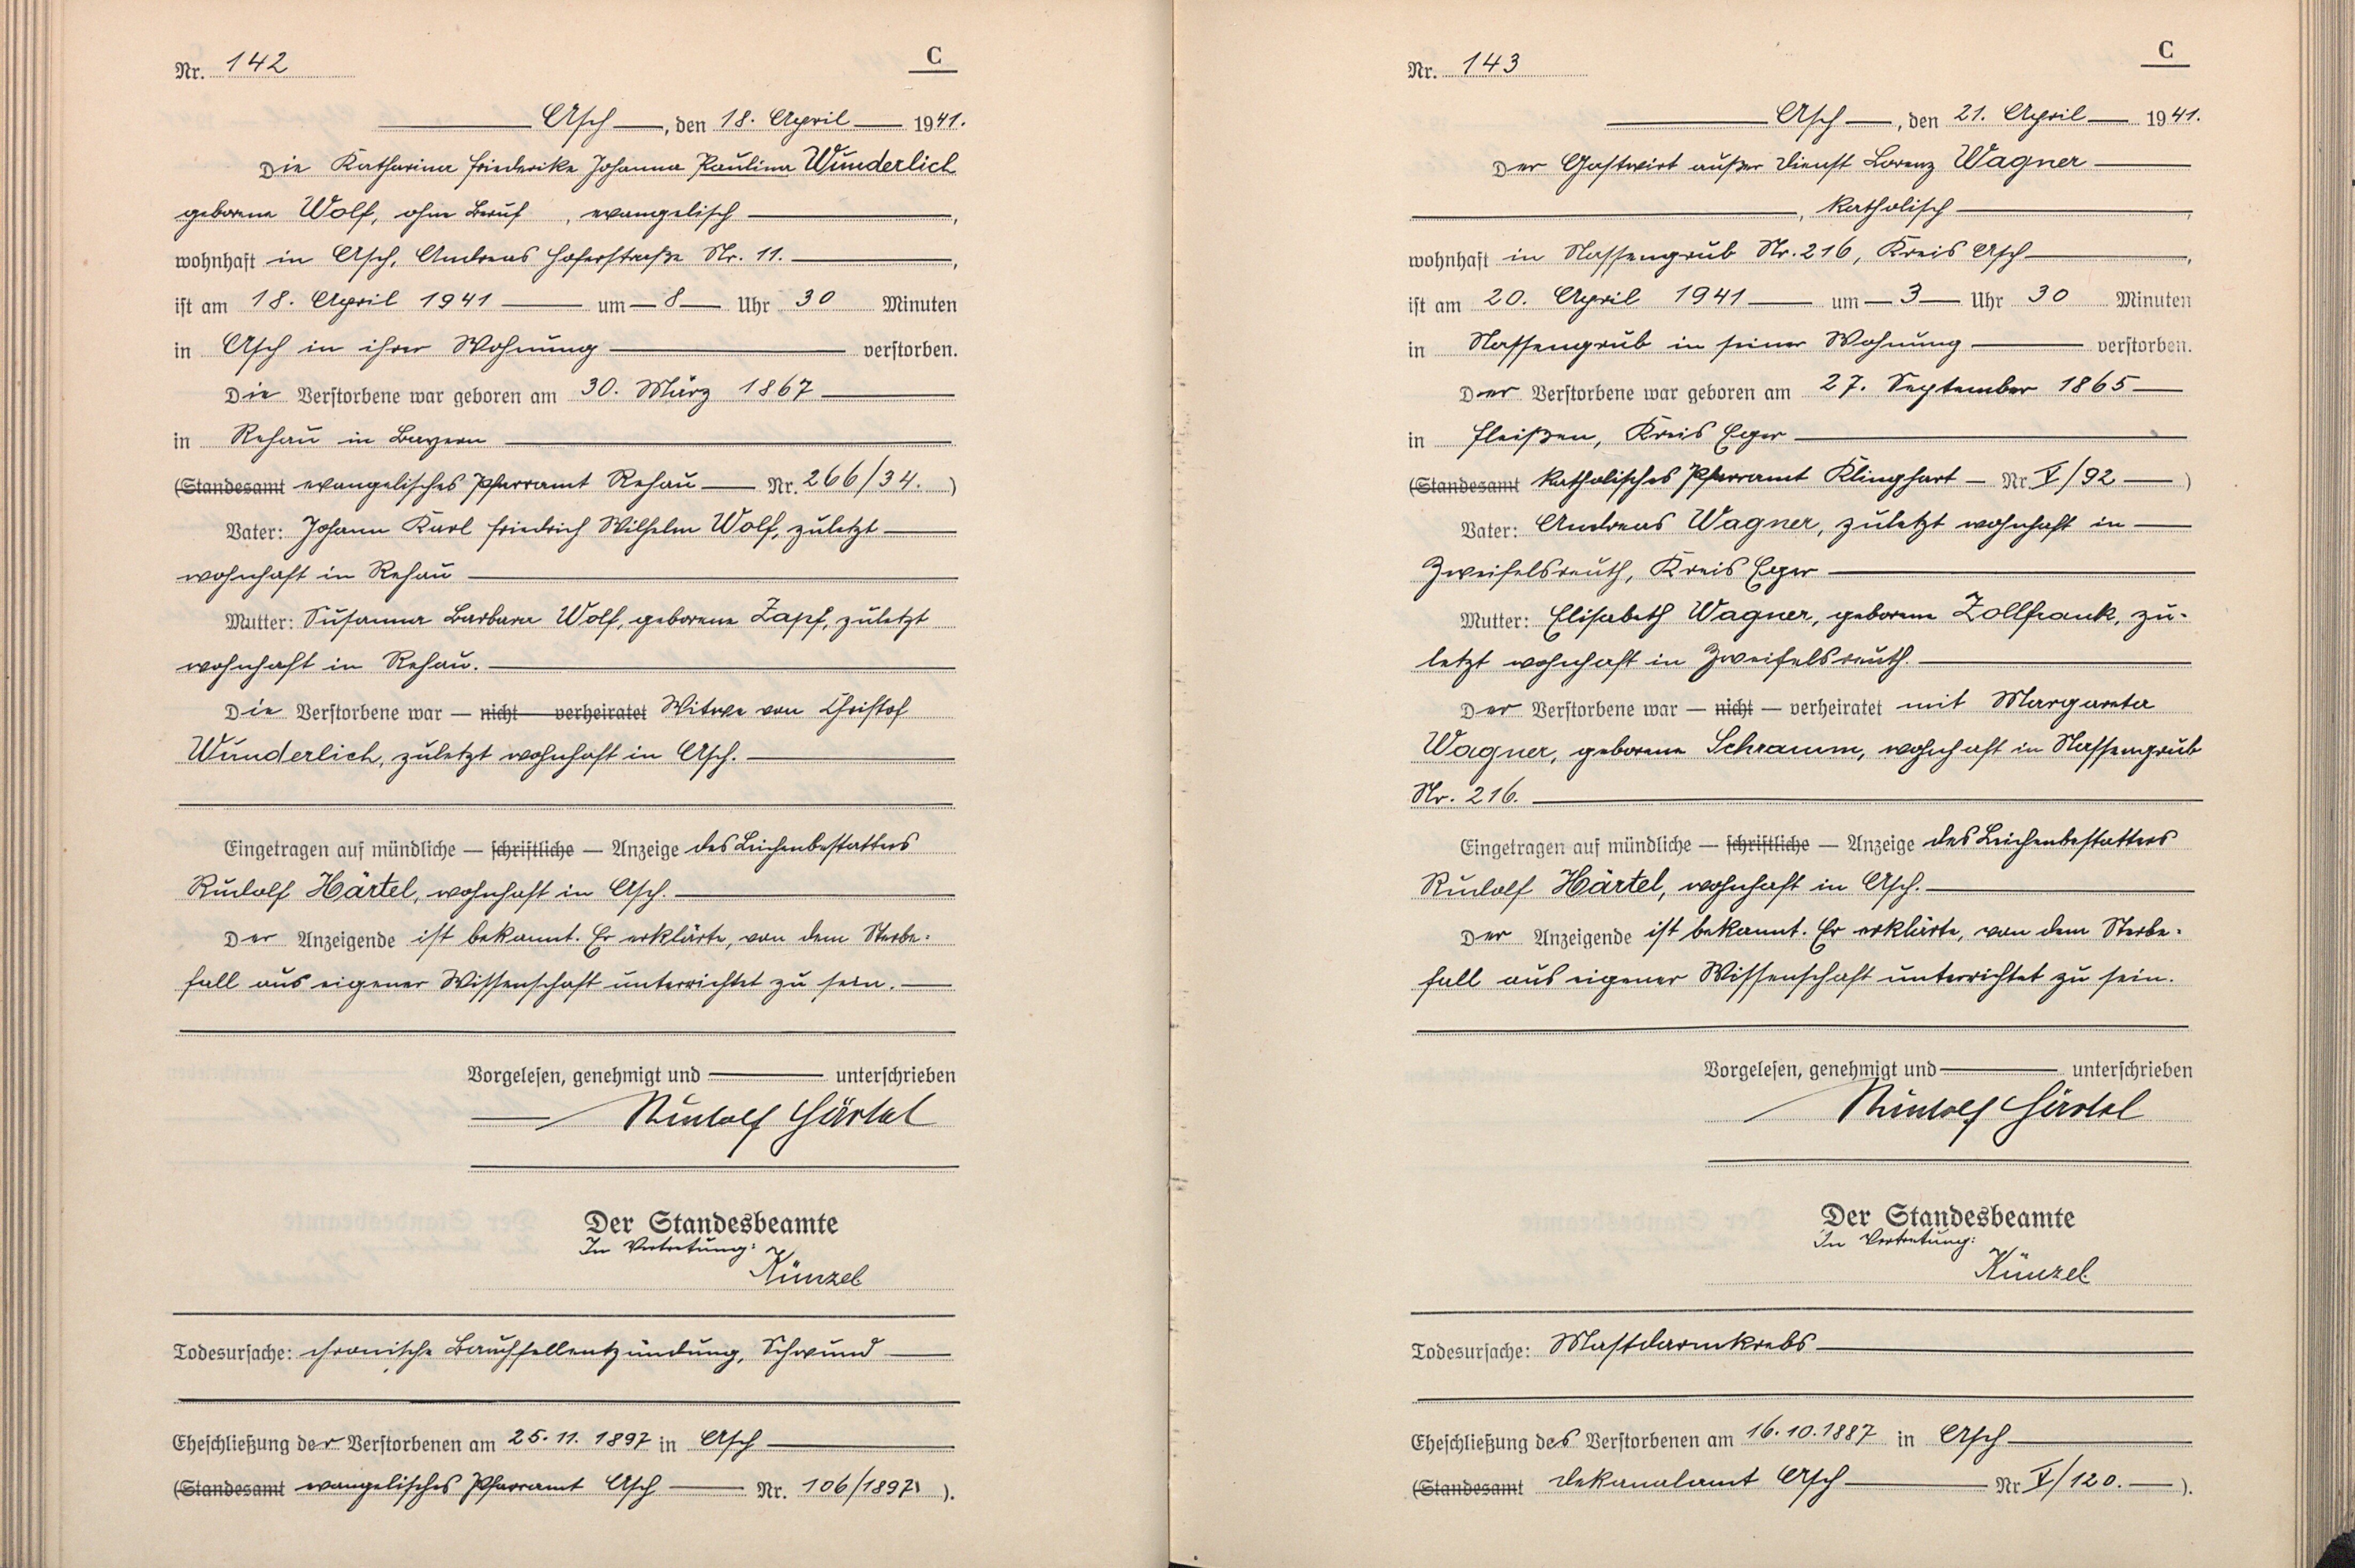 Nr. 142
C
Asch, den 18. April 1941.
Die Katharina Friederike Johanna Paulina Wunderlich
geborene Wolf, ohne Beruf, evangelisch,
wohnhaft in Asch, Andreas Hoferstraße Nr. 11.,
ist am 18. April 1941 um 8 Uhr 30 Minuten
in Asch in ihrer Wohnung verstorben.
Die Verstorbene war geboren am 30. März 1867
in Rehau in Bayern
(Standesamt evangelisches Pfarramt Rehau Nr. 266/34.)
Vater: Johann Karl Friedrich Wilhelm Wolf, zuletzt
wohnhaft in Rehau
Mutter: Susanna Barbara Wolf, geborene Zapf, zuletzt
wohnhaft in Rehau.
Die Verstorbene war — nicht — verheiratet Witwe von Christof
Wunderlich, zuletzt wohnhaft in Asch.
Eingetragen auf mündliche — schriftliche — Anzeige des Leichenbestatters
Rudolf Härtel, wohnhaft in Asch.
Der Anzeigende ist bekannt. Er erklärte, von dem Sterbe-
fall aus eigener Wissenschaft unterrichtet zu sein.
Vorgelesen, genehmigt und unterschrieben
Rudolf Härtel
Der Standesbeamte
In Vertretung:
Künzel
Todesursache: chronische Bauchfellentzündung, Schwund
Eheschließung der Verstorbenen am 25.11.1897 in Asch
(Standesamt evangelisches Pfarramt Asch Nr. 106/1897).
Nr. 143
C
Asch, den 21. April 1941.
Der Gastwirt außer Dienst Lorenz Wagner
, katholisch,
wohnhaft in Nassengrub Nr. 216, Kreis Asch,
ist am 20. April 1941 um 3 Uhr 30 Minuten
in Nassengrub in seiner Wohnung verstorben.
Der Verstorbene war geboren am 27. September 1865
in Fleißen, Kreis Eger
(Standesamt katholisches Pfarramt Klinghart — Nr. V/92)
Vater: Andreas Wagner, zuletzt wohnhaft in
Zweifelsreuth, Kreis Eger
Mutter: Elisabeth Wagner, geborene Zollfrank, zu-
letzt wohnhaft in Zweifelsreuth.
Der Verstorbene war — nicht — verheiratet mit Margareta
Wagner, geborene Schramm, wohnhaft in Nassengrub
Nr. 216.
Eingetragen auf mündliche — schriftliche — Anzeige des Leichenbestatters
Rudolf Härtel, wohnhaft in Asch.
Der Anzeigende ist bekannt. Er erklärte, von dem Sterbe-
fall aus eigener Wissenschaft unterrichtet zu sein.
Vorgelesen, genehmigt und unterschrieben
Rudolf Härtel
Der Standesbeamte
In Vertretung:
Künzel
Todesursache: Mastdarmkrebs
Eheschließung des Verstorbenen am 16.10.1887 in Asch
(Standesamt Dekanalamt Asch Nr. V/120.).